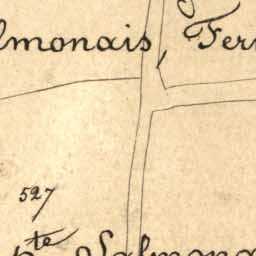 lmonais, Fer
527
pte Salmona